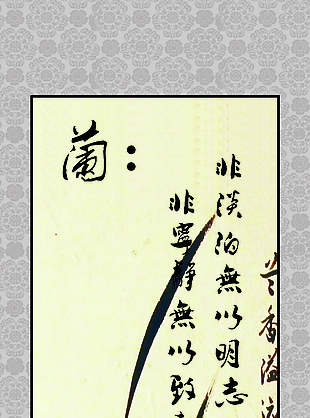 蘭：
兰香溢
非淡泊無以明志
非寧靜無以致